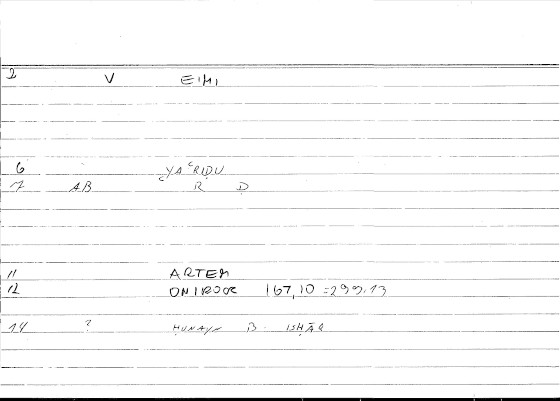 2 V EIMI
6 YAʿRIḌU
7 AB R Ḍ
11 ARTEM
12 ONIROCR 167,10 = 299.13
14 ? ḤUNAYN B. ISḤĀQ